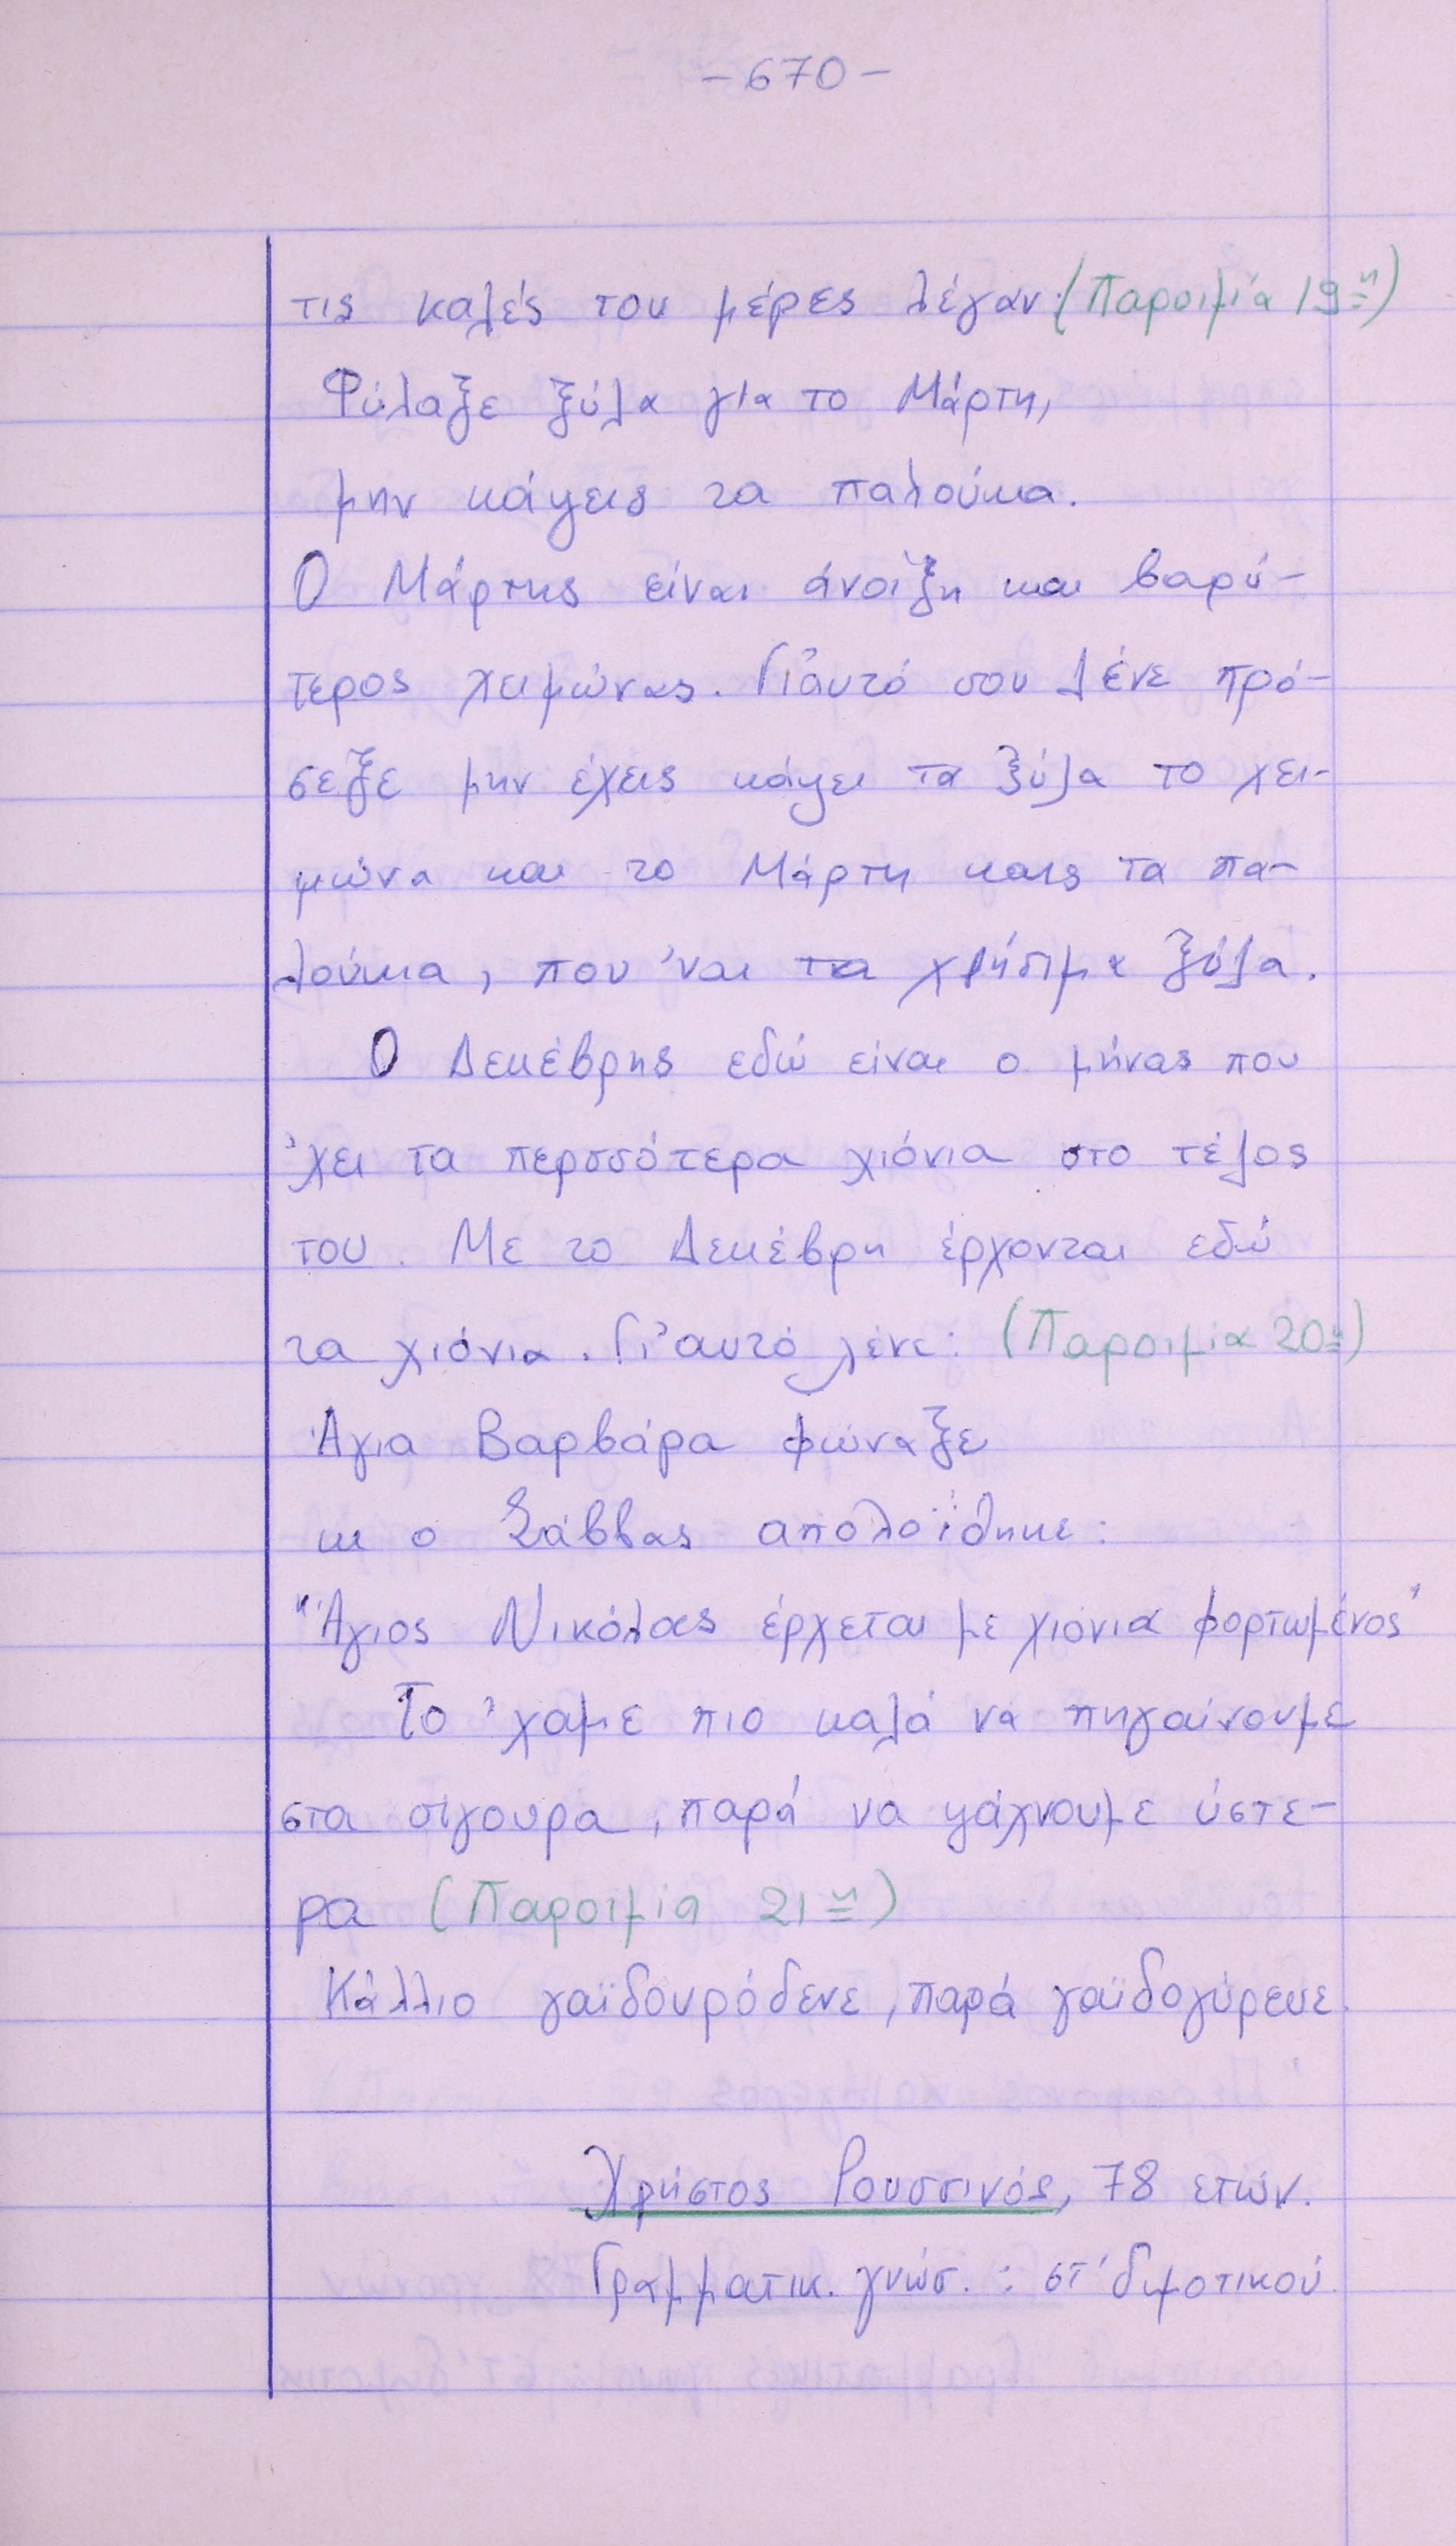 -670-
τις καλές του μέρες λέγαν: (Παροιμία 19η)
Φύλαξε ξύλα για το Μάρτη,
μην κάψεις τα παλούκα.
Ο Μάρτης είναι άνοιξη και βαρύ-
τερος χειμώνας. Γι'αυτό σου λένε πρό-
σεξε μην έχεις κάψει τα ξύλα το χει-
μώνα και το Μάρτη καις τα πα-
λούκα, που 'ναι τα χρήσιμα ξύλα.
Ο Δεκέβρης εδώ είναι ο μήνας που
'χει τα περσσότερα χιόνια στο τέλος
του. Με το Δεκέβρη έρχονται εδώ
τα χιόνια. Γι'αυτό λένε: (Παροιμία 20η)
Άγια Βαρβάρα φώναξε
κι ο Σάββας απολοΐθηκε:
"Άγιος Νικόλας έρχεται με χιόνια φορτωμένος"
Το 'χαμε πιο καλά να πηγαίνουμε
στα σίγουρα, παρά να ψάχνουμε ύστε-
ρα (Παροιμία 21η)
Κάλλιο γαϊδουρόδενε, παρά γαϊδογύρευε.
Χρήστος Ρουσσινός, 78 ετών.
Γραμματικ. γνώσ. : στ' δημοτικού.